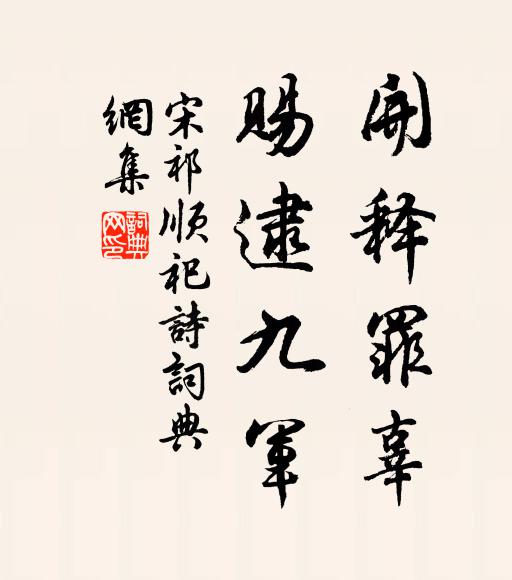 開释罪辜
賜逮九軍
宋祁順祀詩詞典
網集
詞典網印